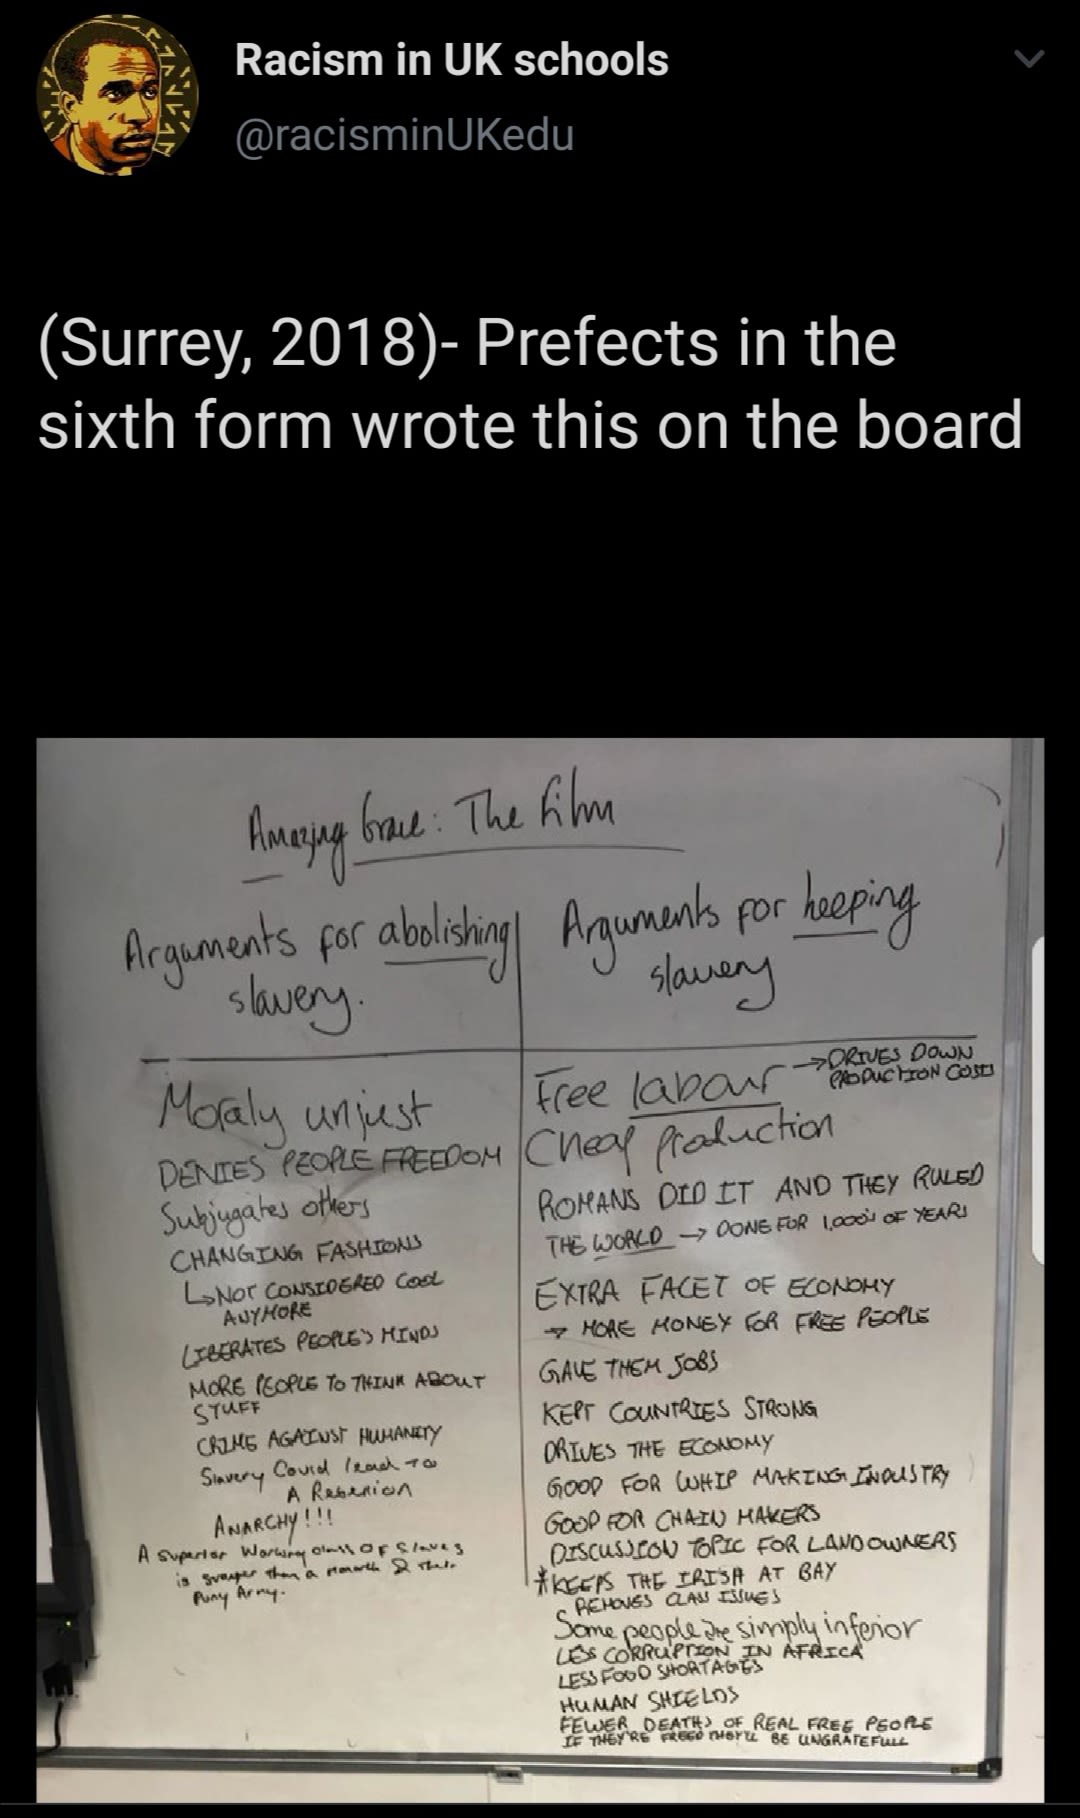 Racism in UK schools
@racisminUKedu
(Surrey, 2018)- Prefects in the
sixth form wrote this on the board
Amazing Grace: The Film
Arguments for abolishing
slavery.
Moraly unjust
DENIES PEOPLE FREEDOM
Subjugates others
CHANGING FASHIONS
↳ NOT CONSIDERED COOL
ANYMORE
LIBERATES PEOPLE'S MINDS
MORE PEOPLE TO THINK ABOUT
STUFF
CRIME AGAINST HUMANITY
Slavery Could lead to
A Rebenion
ANARCHY!!!
A superior Working class OF Slaves
is than a & their
Puny Army.
Arguments for keeping
slavery
Free labour → DRIVES DOWN
PRODUCTION COSTS
Cheap production
ROMANS DID IT AND THEY RULED
THE WORLD → DONE FOR 1,000's OF YEARS
EXTRA FACET OF ECONOMY
→ MORE MONEY FOR FREE PEOPLE
GAVE THEM JOBS
KEPT COUNTRIES STRONG
DRIVES THE ECONOMY
GOOD FOR WHIP MAKING INDUSTRY
GOOD FOR CHAIN MAKERS
DISCUSSION TOPIC FOR LANDOWNERS
*KEEPS THE IRISH AT BAY
REMOVES CLASS ISSUES
Some people are simply inferior
LESS CORRUPTION IN AFRICA
LESS FOOD SHORTAGES
HUMAN SHIELDS
FEWER DEATHS OF REAL FREE PEOPLE
IF THEY'RE FREED THEY'LL BE UNGRATEFULL